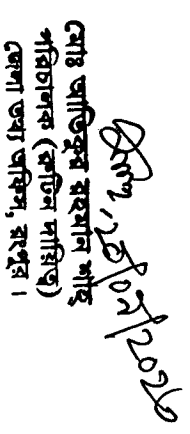 মোঃ আতিকুর রহমান শাহ্
পরিচালক (রুটিন দায়িত্ব)
জেলা তথ্য অফিস, রংপুর ।